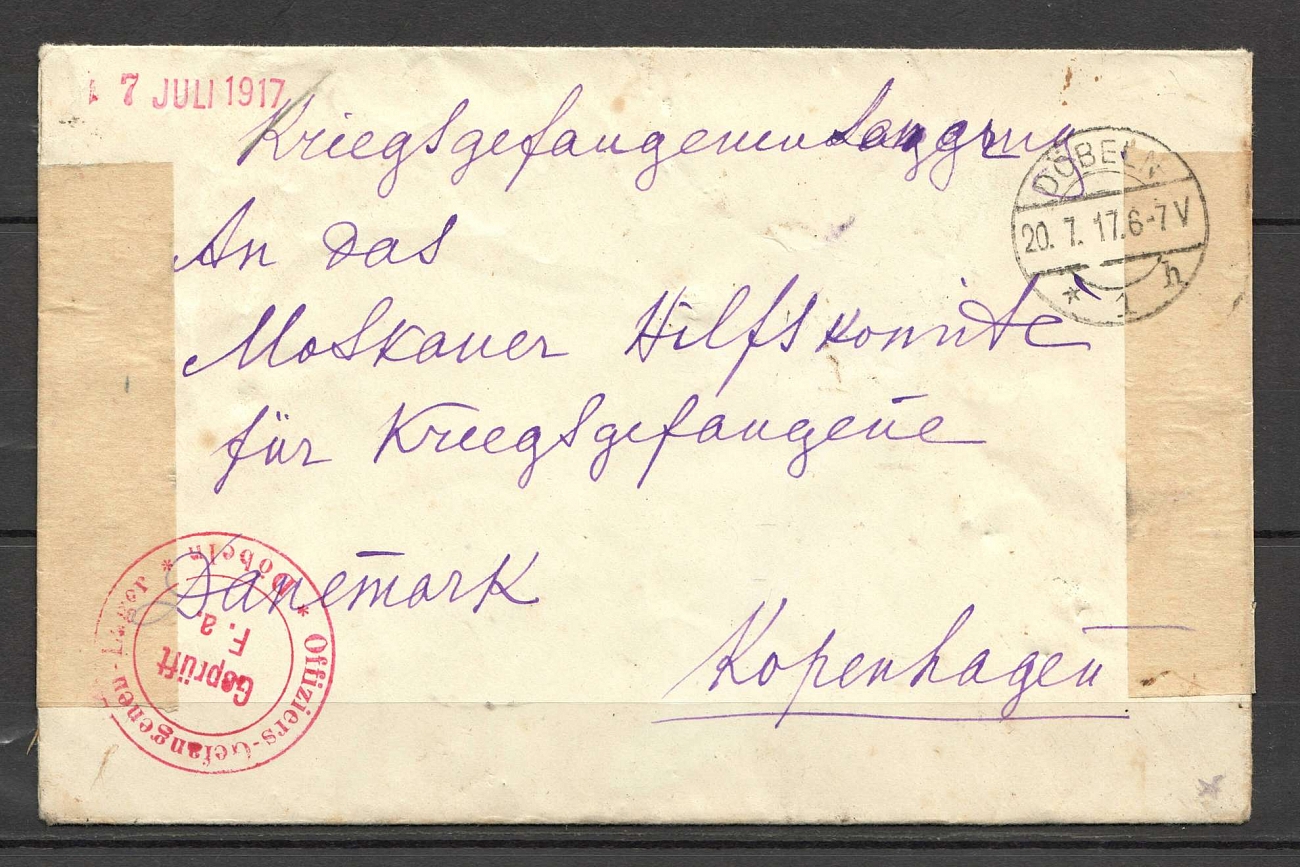 7 JULI 1917
Kriegsgefangenen
DÖBELN
20. 7. 17. 6-7 V
* 1 h
An das
Moskauer Hilfskomite
für Kriegsgefangene
Dänemark
Kopenhagen
* Offiziers-Gefangenen-Lager * Döbeln
Geprüft
F. a.